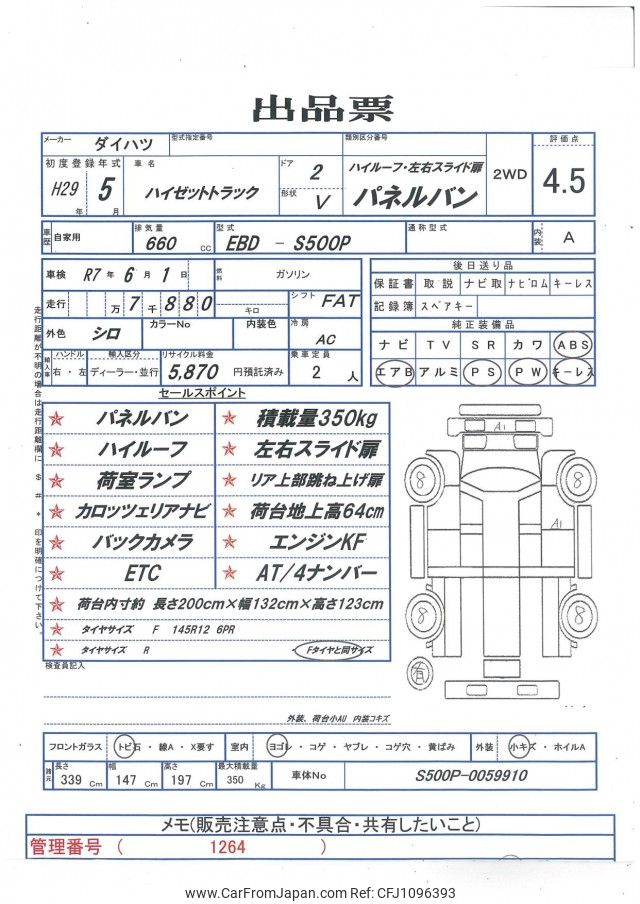 出品票
メーカー ダイハツ 型式指定番号 類別区分番号 評価点
初度登録年式 車名 ドア 2 ハイルーフ・左右スライド扉 2WD 4.5
H29年 5月 ハイゼットトラック 形状 V パネルバン
車歴 自家用 排気量 660 cc 型式 EBD - S500P 通称型式 内装 A
車検 R7年 6月 1日 燃料 ガソリン 後日送り品
走行 万 7千 880 キロ シフト FAT 保証書 取説 ナビ取 ナビロム キーレス
記録簿 スペアキー
外色 シロ カラーNo 内装色 冷房 AC 純正装備品
ナビ TV SR カワ ABS
輸入車 ハンドル 右・左 輸入区分 ディーラー・並行 リサイクル料金 5,870 円預託済み 乗車定員 2 人 エアB アルミ PS PW キーレス
セールスポイント
☆ パネルバン ☆ 積載量350kg
☆ ハイルーフ ☆ 左右スライド扉
☆ 荷室ランプ ☆ リア上部跳ね上げ扉
☆ カロッツェリアナビ ☆ 荷台地上高64cm
☆ バックカメラ ☆ エンジンKF
☆ ETC ☆ AT/4ナンバー
☆ 荷台内寸約 長さ200cm×幅132cm×高さ123cm
☆ タイヤサイズ F 145R12 6PR
☆ タイヤサイズ R Fタイヤと同サイズ
走行距離が不明の場合は走行距離欄に $ # * 印を明確につけて下さい。
A1
8 8
A1
8 8
有
検査員記入
外装、荷台小AU 内装コキズ
フロントガラス トビ石・線A・X要す 室内 ヨゴレ・コゲ・ヤブレ・コゲ穴・黄ばみ 外装 小キズ・ホイルA
諸元 長さ 339 Cm 幅 147 Cm 高さ 197 Cm 最大積載量 350 Kg 車体No S500P-0059910
メモ(販売注意点・不具合・共有したいこと)
管理番号 ( 1264 )
www.CarFromJapan.com Ref: CFJ1096393